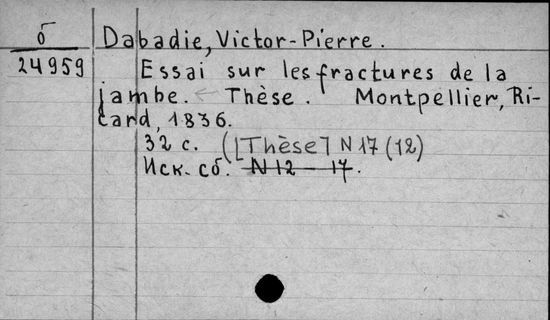 б
24959
Dabadie, Victor-Pierre.
Essai sur les fractures de la
jambe. ← Thèse. Montpellier, Ri-
card, 1836.
32 с. ([Thèse] N 17 (12)
Иск. сб. N 12 - 17.